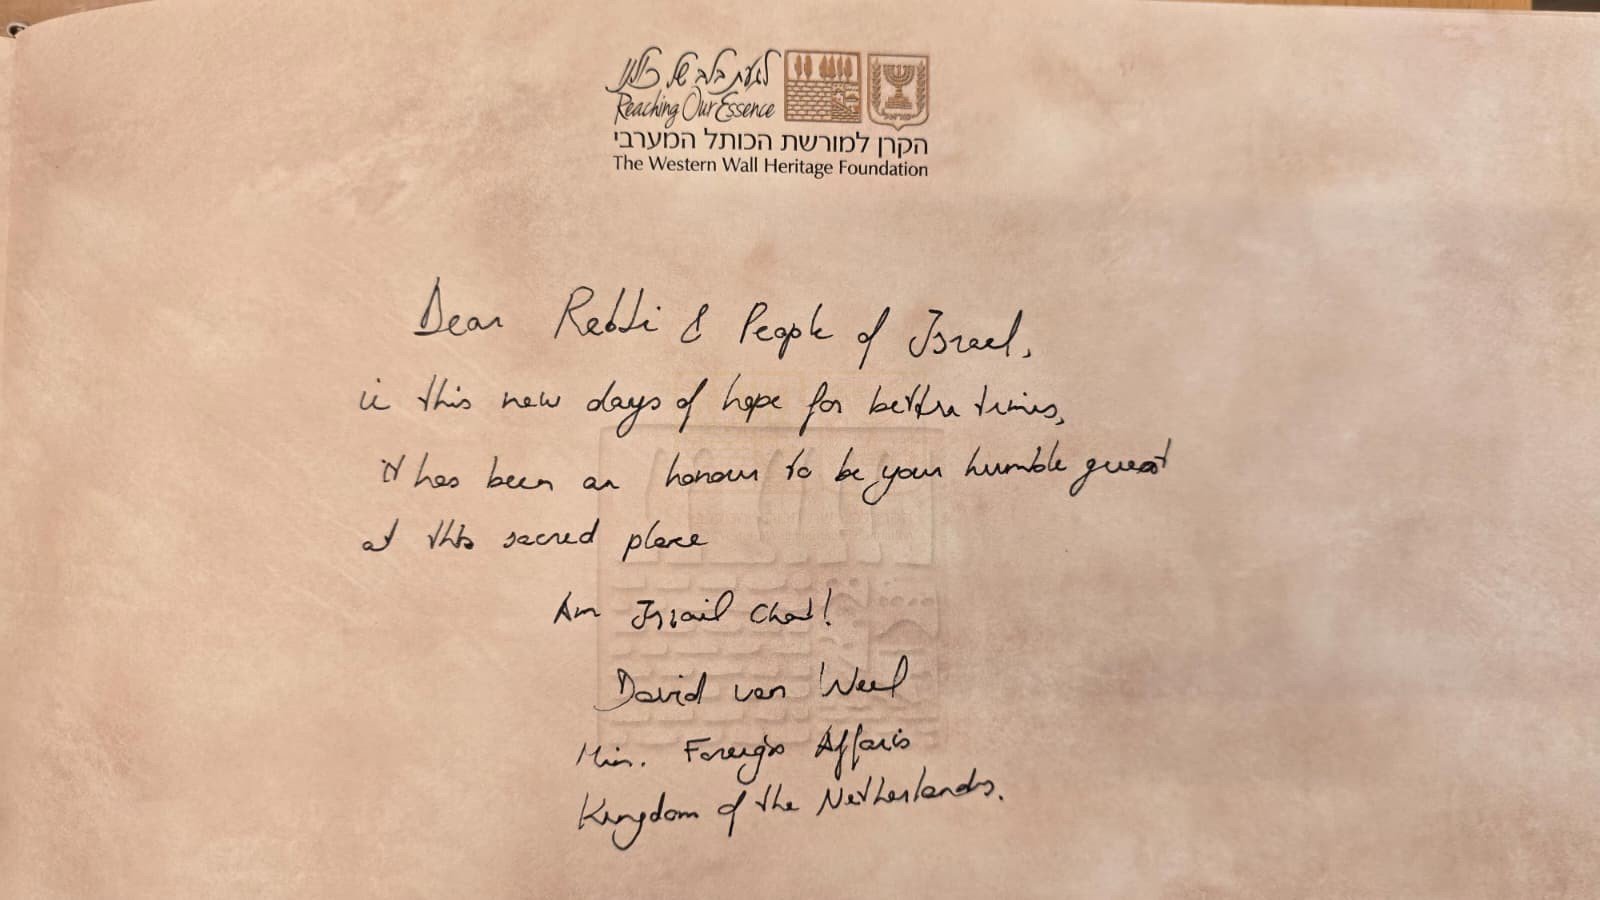 לגעת בלב של כולנו
Reaching Our Essence
ישראל
הקרן למורשת הכותל המערבי
The Western Wall Heritage Foundation
Dear Rebbi & People of Israel,
in this new days of hope for better times,
it has been an honour to be your humble guest
at this sacred place
Am Israil Chai!
David van Weel
Min. Foreign Affairs
Kingdom of the Netherlands.